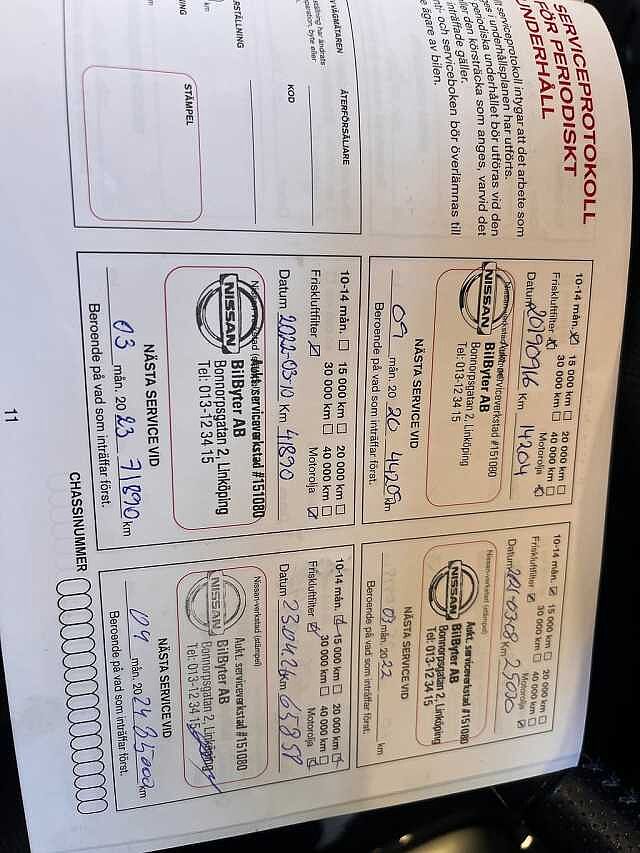 SERVICEPROTOKOLL
FÖR PERIODISKT
UNDERHÅLL
serviceprotokoll intygar att det arbete som
i underhållsplanen har utförts.
periodiska underhållet bör utföras vid den
eller den körsträcka som anges, varvid det
inträffade gäller.
och serviceboken bör överlämnas till
ägare av bilen.
VÄGMÄTAREN
ÅTERFÖRSÄLJARE
KOD
STÄMPEL
10-14 mån. 15 000 km 20 000 km
30 000 km 40 000 km
Friskluftfilter Motorolja
Datum 20190916 Km 14204
Nissan-verkstad
Aukt. serviceverkstad #151080
NISSAN
BilByter AB
Bonnorpsgatan 2, Linköping
Tel: 013-12 34 15
NÄSTA SERVICE VID
09 mån. 20 20 km
Beroende på vad som inträffar först.
10-14 mån. 15 000 km 20 000 km
30 000 km 40 000 km
Friskluftfilter Motorolja
Datum Km
Nissan-verkstad (stämpel)
Aukt. serviceverkstad #151080
NISSAN
BilByter AB
Bonnorpsgatan 2, Linköping
Tel: 013-12 34 15
NÄSTA SERVICE VID
03 mån. 20 22 km
Beroende på vad som inträffar först.
10-14 mån. 15 000 km 20 000 km
30 000 km 40 000 km
Friskluftfilter Motorolja
Datum 2022-03-10 Km 41890
Nissan-verkstad
Aukt. serviceverkstad #151080
NISSAN
BilByter AB
Bonnorpsgatan 2, Linköping
Tel: 013-12 34 15
NÄSTA SERVICE VID
03 mån. 20 23 71890 km
Beroende på vad som inträffar först.
10-14 mån. 15 000 km 20 000 km
30 000 km 40 000 km
Friskluftfilter Motorolja
Datum 230426 Km 65858
Nissan-verkstad (stämpel)
Aukt. serviceverkstad #151080
NISSAN
BilByter AB
Bonnorpsgatan 2, Linköping
Tel: 013-12 34 15
NÄSTA SERVICE VID
04 mån. 20 24 km
Beroende på vad som inträffar först.
CHASSINUMMER
11